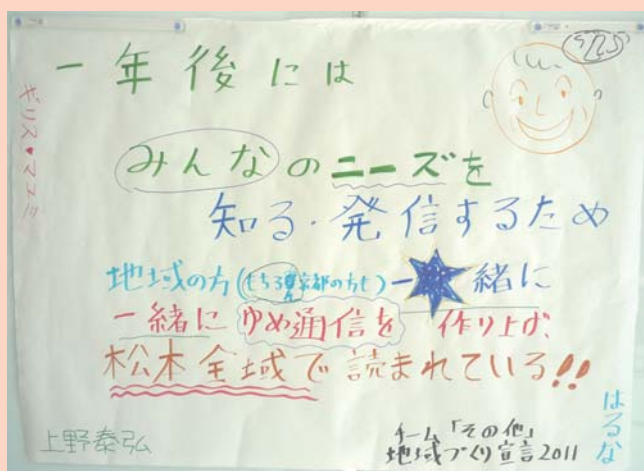 一年後には
みんなのニーズを
知る・発信するため
地域の方(もちろん京都の方も)一★緒に
一緒に ゆめ通信を 作り上げ、
松本全域で読まれている!!
ギリス♥マユミ
はるな
上野泰弘
チーム「その他」
地域づくり宣言2011